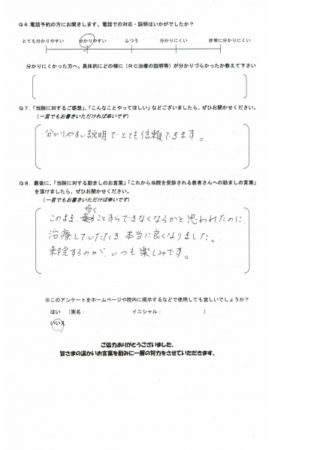 Q6.電話予約の方にお聞きします。電話での対応・説明はいかがでしたか？
とても分かりやすい　分かりやすい　ふつう　分かりにくい　非常に分かりにくい
分かりにくかった方へ。具体的にどの様に（RC治療の説明等）が分かりづらかったか教えて下さい
Q7.「当院に対するご感想」、「こんなことやってほしい」などございましたら、ぜひお聞かせください。
（一言でもお書きいただければ幸いです）
分かりやすい説明でとても信頼できます。
Q8.最後に、「当院に対する励ましのお言葉」「これから当院を受診される患者さんへの励ましの言葉」
を頂けましたら、ぜひお聞かせください。
（一言でもお書きいただければ幸いです）
このまま 歩くことすらできなくなるかと思われたのに、
治療していただき 本当に良くなりました。
来院するのが、いつも楽しみです。
※このアンケートをホームページや院内に掲示するなどで使用しても宜しいでしょうか？
はい　（実名：　　　イニシャル：　　　）
いいえ
ご協力ありがとうございました。
皆さまの温かいお言葉を励みに一層の努力をさせていただきます。